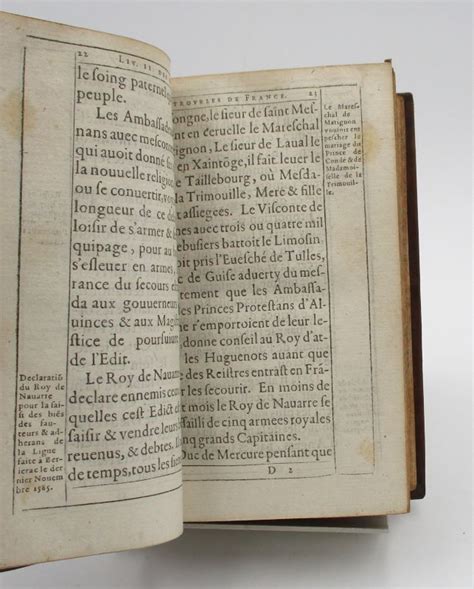 22 LIV. II. DES
le soing paternel
peuple.
Les Ambassad
nans auec mescon
qui auoit donné
la nouuelle religio
ou se conuertir, v
longueur de ce de
loisir de s'armer &
quipage, pour au
s'esleuer en armes,
rance du secours e
da aux gouuerneu
uinces & aux Mag
stice de poursuiure
de l'Edit.
Le Roy de Nauarre
declare ennemis ceux
quelles cest Edict
saisir & vendre leurs
reuenus, & debtes.
de temps, tous les
Declaratiõ
du Roy de
Nauarre
pour la sai-
sie des biẽs
des fau-
teurs & ad-
herans de
la Ligue
faite à Ber-
gerac le der-
nier Nouem
bre 1585.
TROVBLES DE FRANCE. 23
ongne, le sieur de saint Mes-
nt en ceruelle le Mareschal
ignon, Le sieur de Laual le
en Xaintõge, il fait leuer le
e Taillebourg, où Mesda-
la Trimouille, Mere & fille
t assiegees. Le Visconte de
nes auec trois ou quatre mil
ebusiers battoit le Limosin
oit pris l'Euesché de Tulles,
c de Guise aduerty du mes-
tement que les Ambassa-
es Princes Protestans d'Al-
e r'emportoient de leur le-
donne conseil au Roy d'at-
les Huguenots auant que
des Reistres entrast en Frã-
es secourir. En moins de
t mois le Roy de Nauarre se
sailli de cinq armees royales
inq grands Capitaines.
Duc de Mercure pensant que
D 2
Le Mares-
chal de
Matignon
voulut em-
pescher le
mariage du
Prince de
Condé & de
Madamoi-
selle de la
Trimouil-
le.